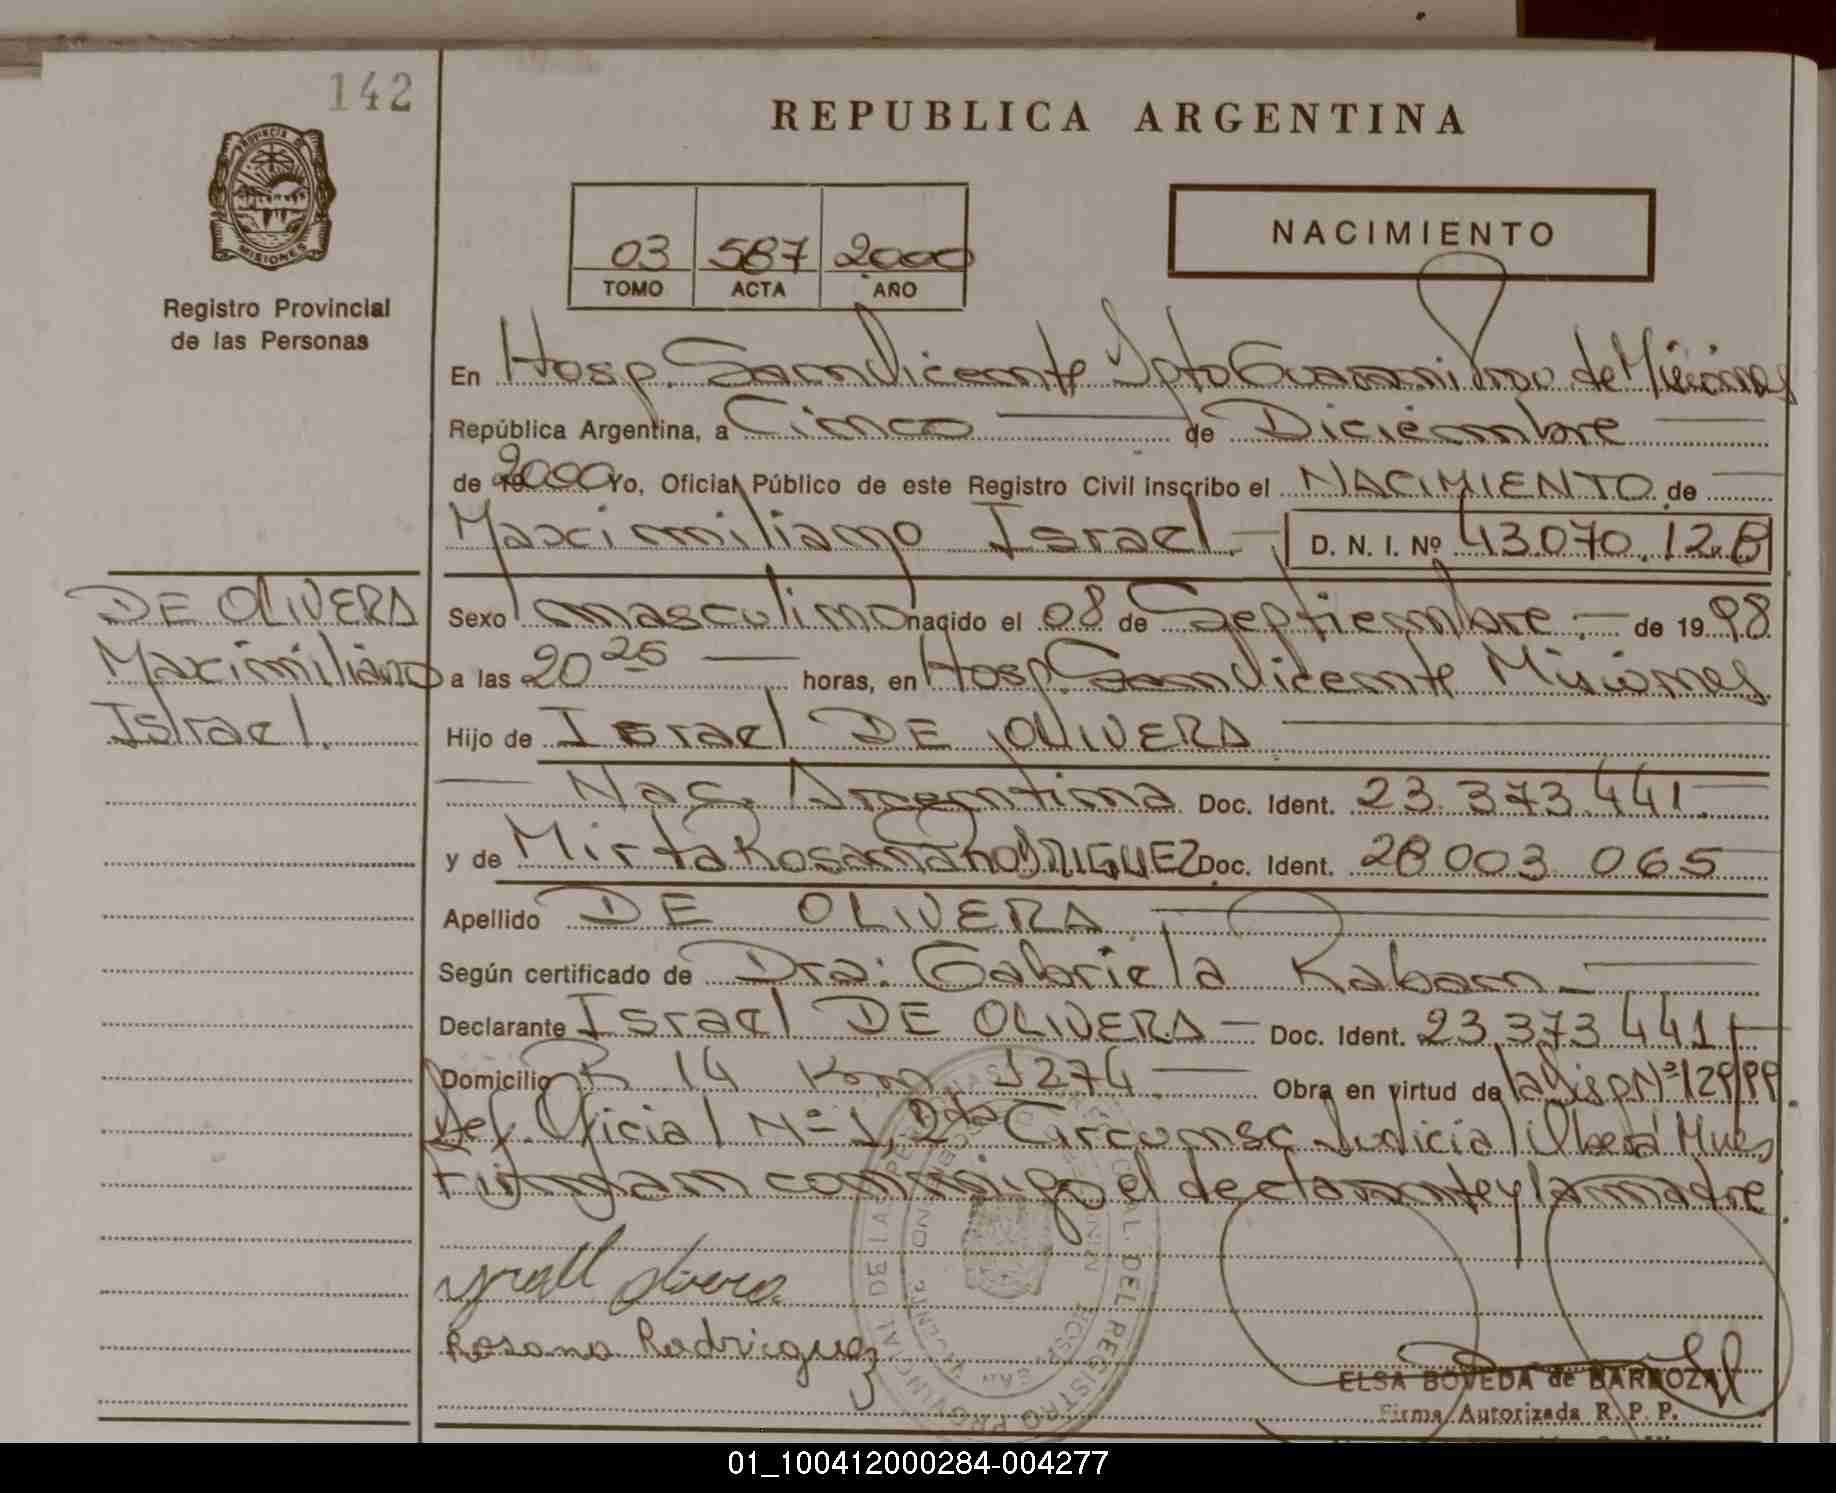 142
REPUBLICA ARGENTINA
PROVINCIA DE
MISIONES
Registro Provincial
de las Personas
03 587 2000
TOMO ACTA AÑO
NACIMIENTO
En Hosp. San Vicente Dpto Guarani Prov de Misiones
República Argentina, a Cinco de Diciembre
de 2000 Yo, Oficial Público de este Registro Civil inscribo el NACIMIENTO de
Maximiliano Israel. D. N. I. Nº 43.070.128
DE OLIVERA
Maximiliano
Israel.
Sexo masculino nacido el 08 de Septiembre de 1998
a las 20 25 horas, en Hosp. San Vicente Misiones
Hijo de Israel DE OLIVERA
Nac. Argentina Doc. Ident. 23.373.441
y de Mirta Rosana RODRIGUEZ Doc. Ident. 28 003 065
Apellido DE OLIVERA
Según certificado de Dra: Gabriela Raban
Declarante Israel DE OLIVERA Doc. Ident. 23.373 441
Domicilio R 14 Km 1274 Obra en virtud de la Disp Nº 129/99
Def. Oficial Nº 1, 2da Circunsc Judicial Oberá Mnes
Firman conmigo el declarante y la madre
Rosana Rodriguez
REGISTRO PROVINCIAL DE LAS PERSONAS
ELSA BOVEDA de BARBOZA
Firma Autorizada R. P. P.
01_100412000284-004277